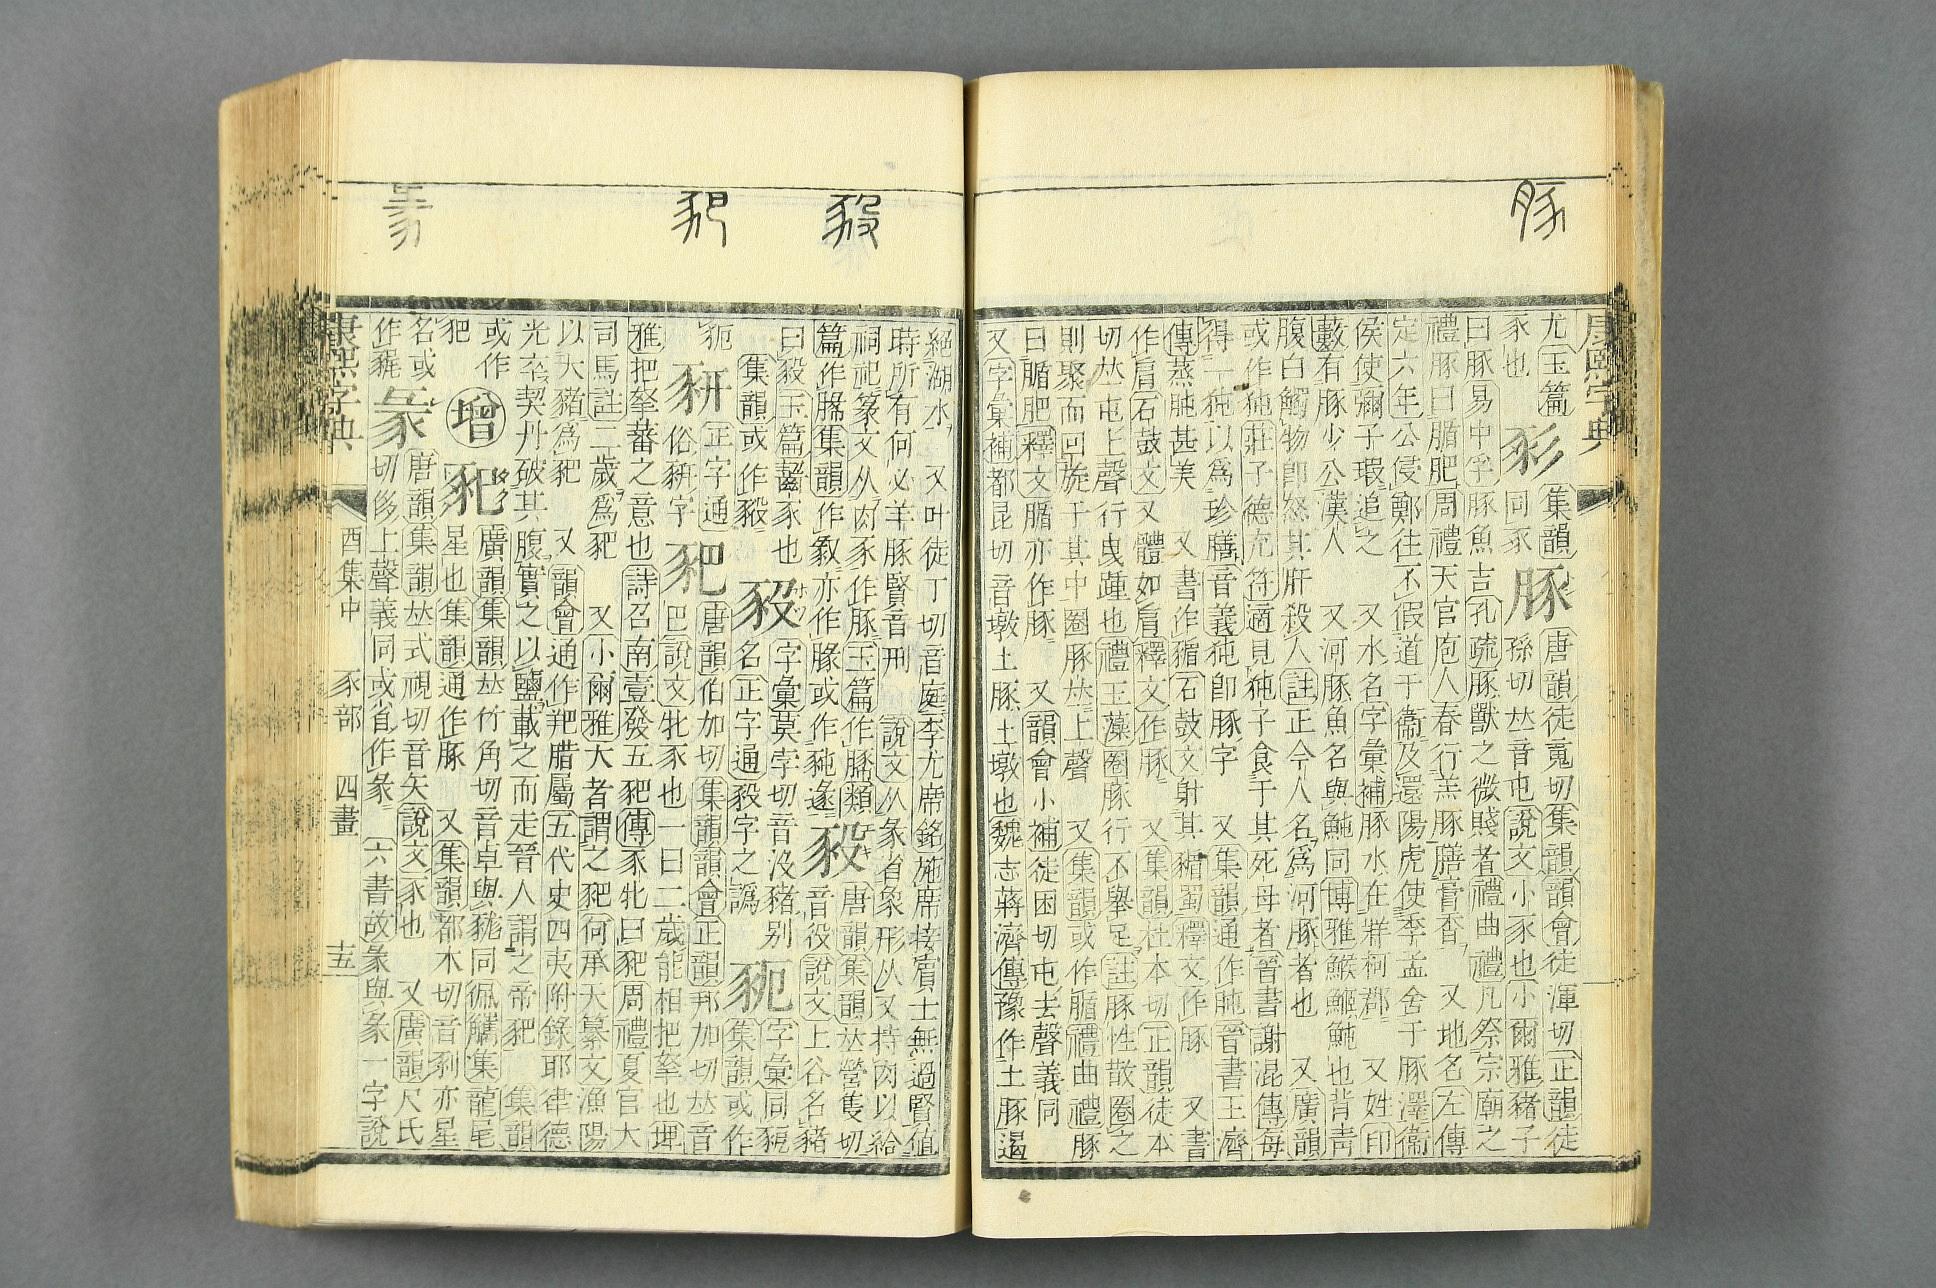 豚
尤玉篇
豕也
豖
集韻
同豕
豚
唐韻徒䰟切集韻韻會徒渾切正韻徒
孫切𠀤音屯說文小豕也小爾雅豬子
曰豚易中孚豚魚吉孔疏豚獸之微賤者禮曲禮凡祭宗廟之
禮豚曰腯肥周禮天官庖人春行羔豚膳膏香 又地名左傳
定六年公侵鄭往不假道于衞及還陽虎使季孟舍于豚澤衞
侯使彌子瑕追之 又水名字彙補豚水在牂柯郡 又姓印
藪有豚少公漢人 又河豚魚名與魨同博雅鯸䱌魨也背靑
腹白觸物卽怒其肝殺人註正今人名爲河豚者也 又廣韻
或作㹠莊子德充符適見㹠子食于其死母者晉書謝混傳每
得一㹠以爲珍膳音義㹠卽豚字 又集韻通作肫晉書王濟
傳蒸肫甚美 又書作豬石鼓文射其豬蜀釋文作豚 又書
作肩石鼓文又體如肩釋文作豚 又集韻杜本切正韻徒本
切𠀤屯上聲行曳踵也禮玉藻圈豚行不舉足註豚性散圈之
則聚而回旋于其中圈豚𠀤上聲 又集韻或作腯禮曲禮豚
曰腯肥釋文腯亦作豚 又韻會小補徒困切屯去聲義同
又字彙補都昆切音墩土豚土墩也魏志蔣濟傳豫作土豚遏
豛
豝
彖
絕湖水 又叶徒丁切音庭李尤席銘施席接賓士無過賢値
時所有何必羊豚賢音刑 說文从彖省象形从又持肉以給
祠祀篆文从肉豕作豚玉篇作豚類
篇作腞集韻作𢿢亦作腞或作豘𨔵
豛
唐韻集韻𠀤營隻切
音役說文上谷名豬
曰豛玉篇豶豕也
集韻或作豭
豛
字彙莫孛切音没豬別
名正字通豛字之譌
豟
字彙同豟
集韻或作
豟
豜
正字通
俗豣字
豝
唐韻伯加切集韻韻會正韻邦加切𠀤音
巴說文牝豕也一曰二歲能相把拏也埤
雅把拏蕃之意也詩召南壹發五豝傳豕牝曰豝周禮夏官大
司馬註二歲爲豝 又小爾雅大者謂之豝何承天纂文漁陽
以大豬爲豝 又韻會通作羓腊屬五代史四夷附錄耶律德
光卒契丹破其腹實之以鹽載之而走晉人謂之帝豝 集韻
或作
豝
增
豝
廣韻集韻𠀤竹角切音卓與豥同佩觿集龍尾
星也集韻通作豚 又集韻都木切音剥亦星
名或
作豗
彖
唐韻集韻𠀤式視切音矢說文豕也 又廣韻尺氏
切侈上聲義同或省作彖 六書故彖與彖一字說
康熙字典
酉集中
豕部
四畫